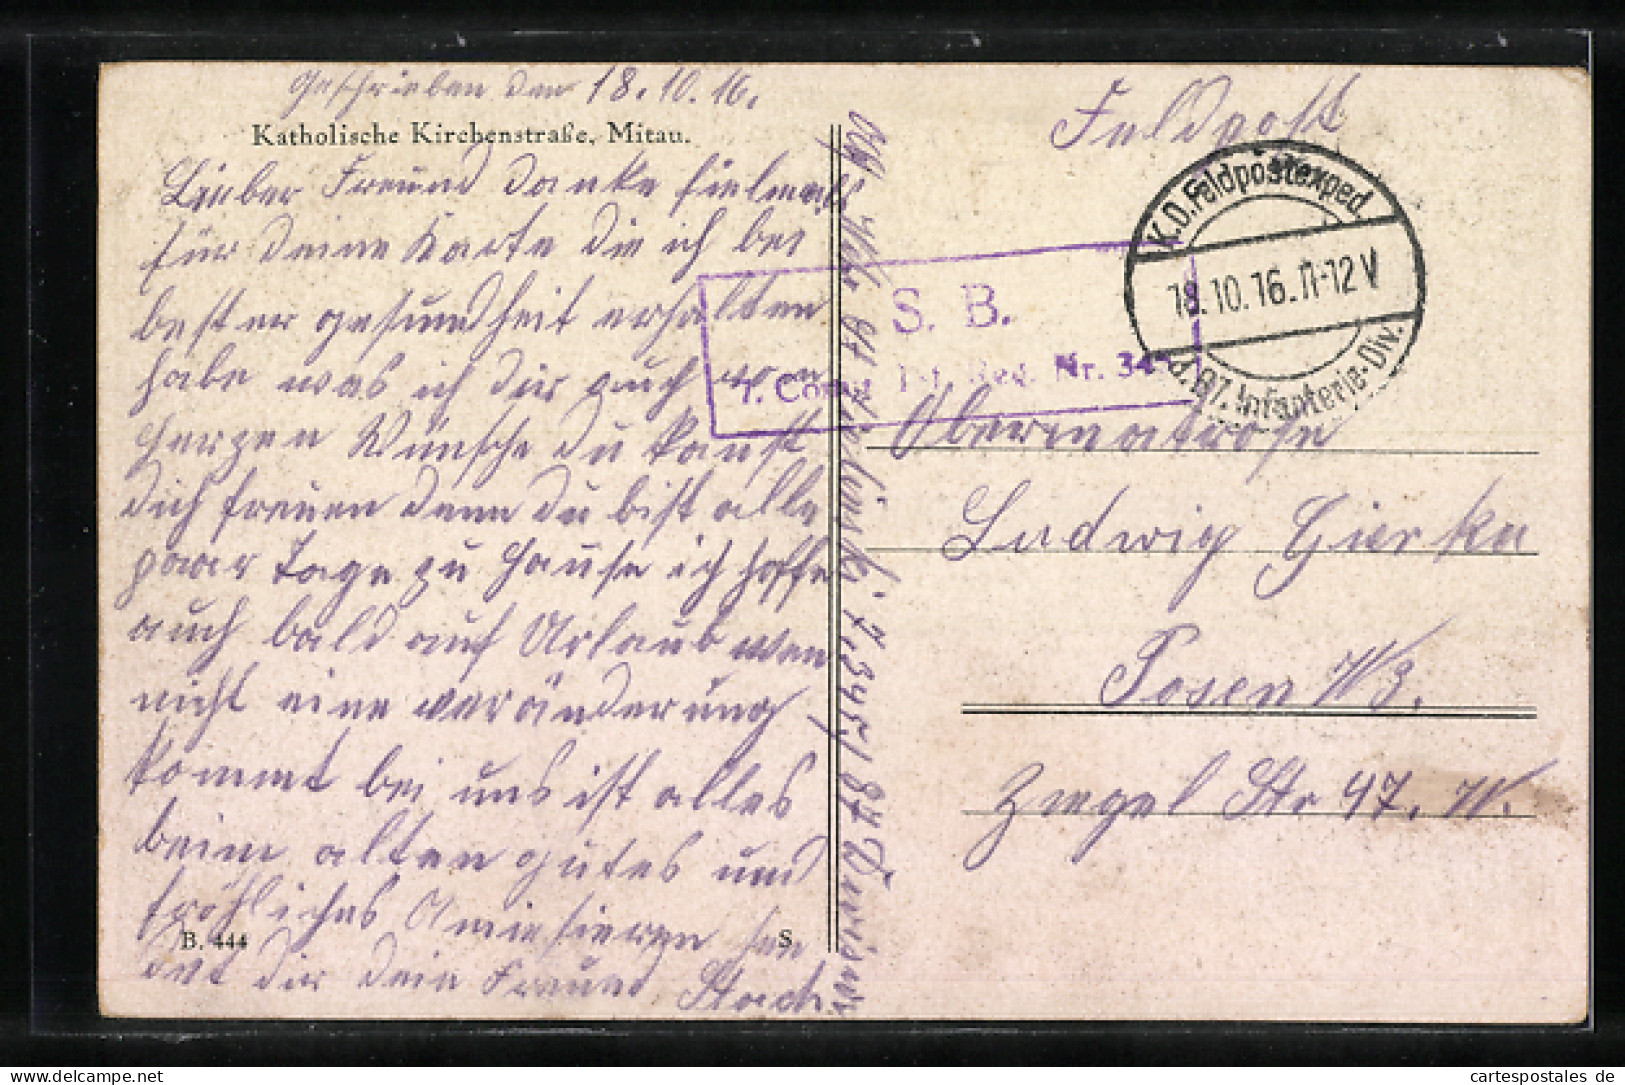 Geschrieben den 18.10.16.
Katholische Kirchenstraße, Mitau.
Lieber Freund danke fielmals
für deine Karte die ich bei
bester gesundheit erhalten
habe was ich dir auch von
Herzen Wünsche du kanst
dich freuen denn du bist alle
paar Tage zu Hause ich hoffe
auch bald auf Urlaub wen
nicht eine veränderung
kommt bei uns ist alles
beim alten gutes und
fröhliches Amiesieren sen
det dir dein Freund Stach
B. 444
S
Feldpost
K.D. Feldpostexped.
18.10.16.11-12V
d. 87. Infanterie-Div.
S. B.
7. Comp. Inf. Reg. Nr. 345
Obermatrose
Ludwig Gierka
Posen W3.
Ziegel Str 47. W.
7. 345 87 Division